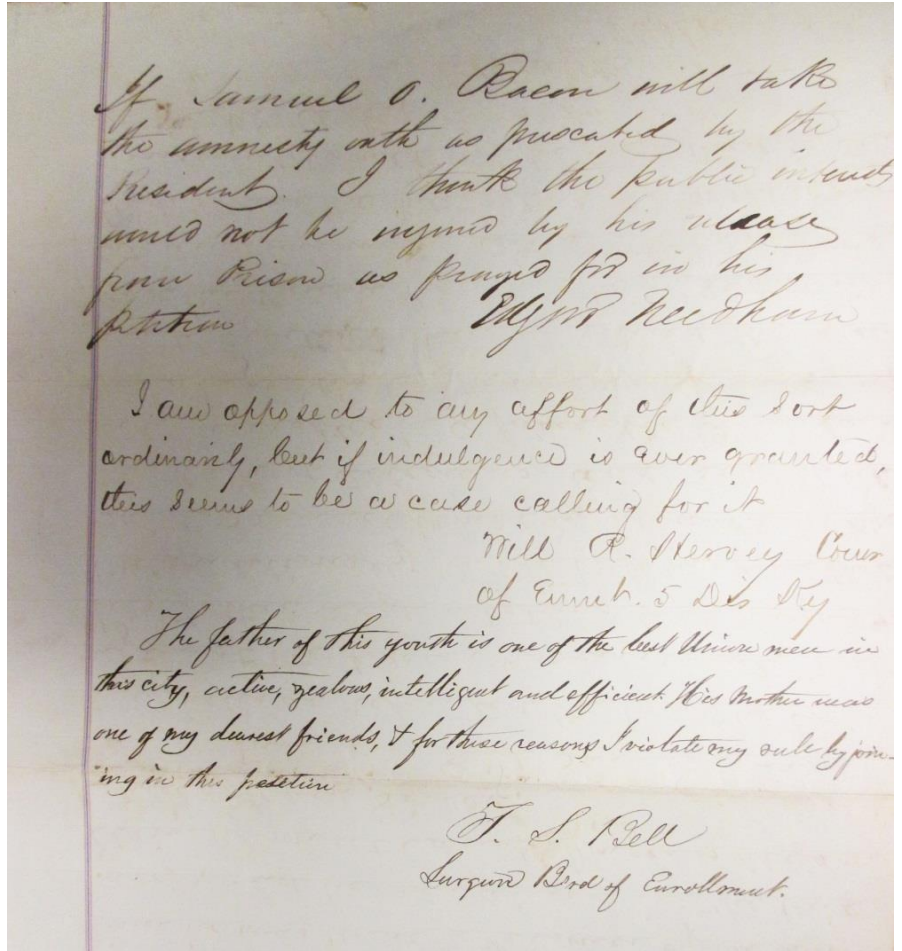 If Samuel O. Bacon will take
the amnesty oath as prescribed by the
President. I think the public interests
would not be injured by his release
from Prison as prayed for in his
petition Edgar Needham
I am opposed to any affort of this sort
ordinarily, but if indulgence is ever granted,
this seems to be a case calling for it
Will R. Hervey Com
of Enmt. 5 Dis Ky
The father of this youth is one of the best Union men in
this city, active, zealous, intelligent and efficient. His mother was
one of my dearest friends, & for these reasons I violate my rule by join-
ing in this petition
T. S. Bell
Surgeon Bord of Enrollment.